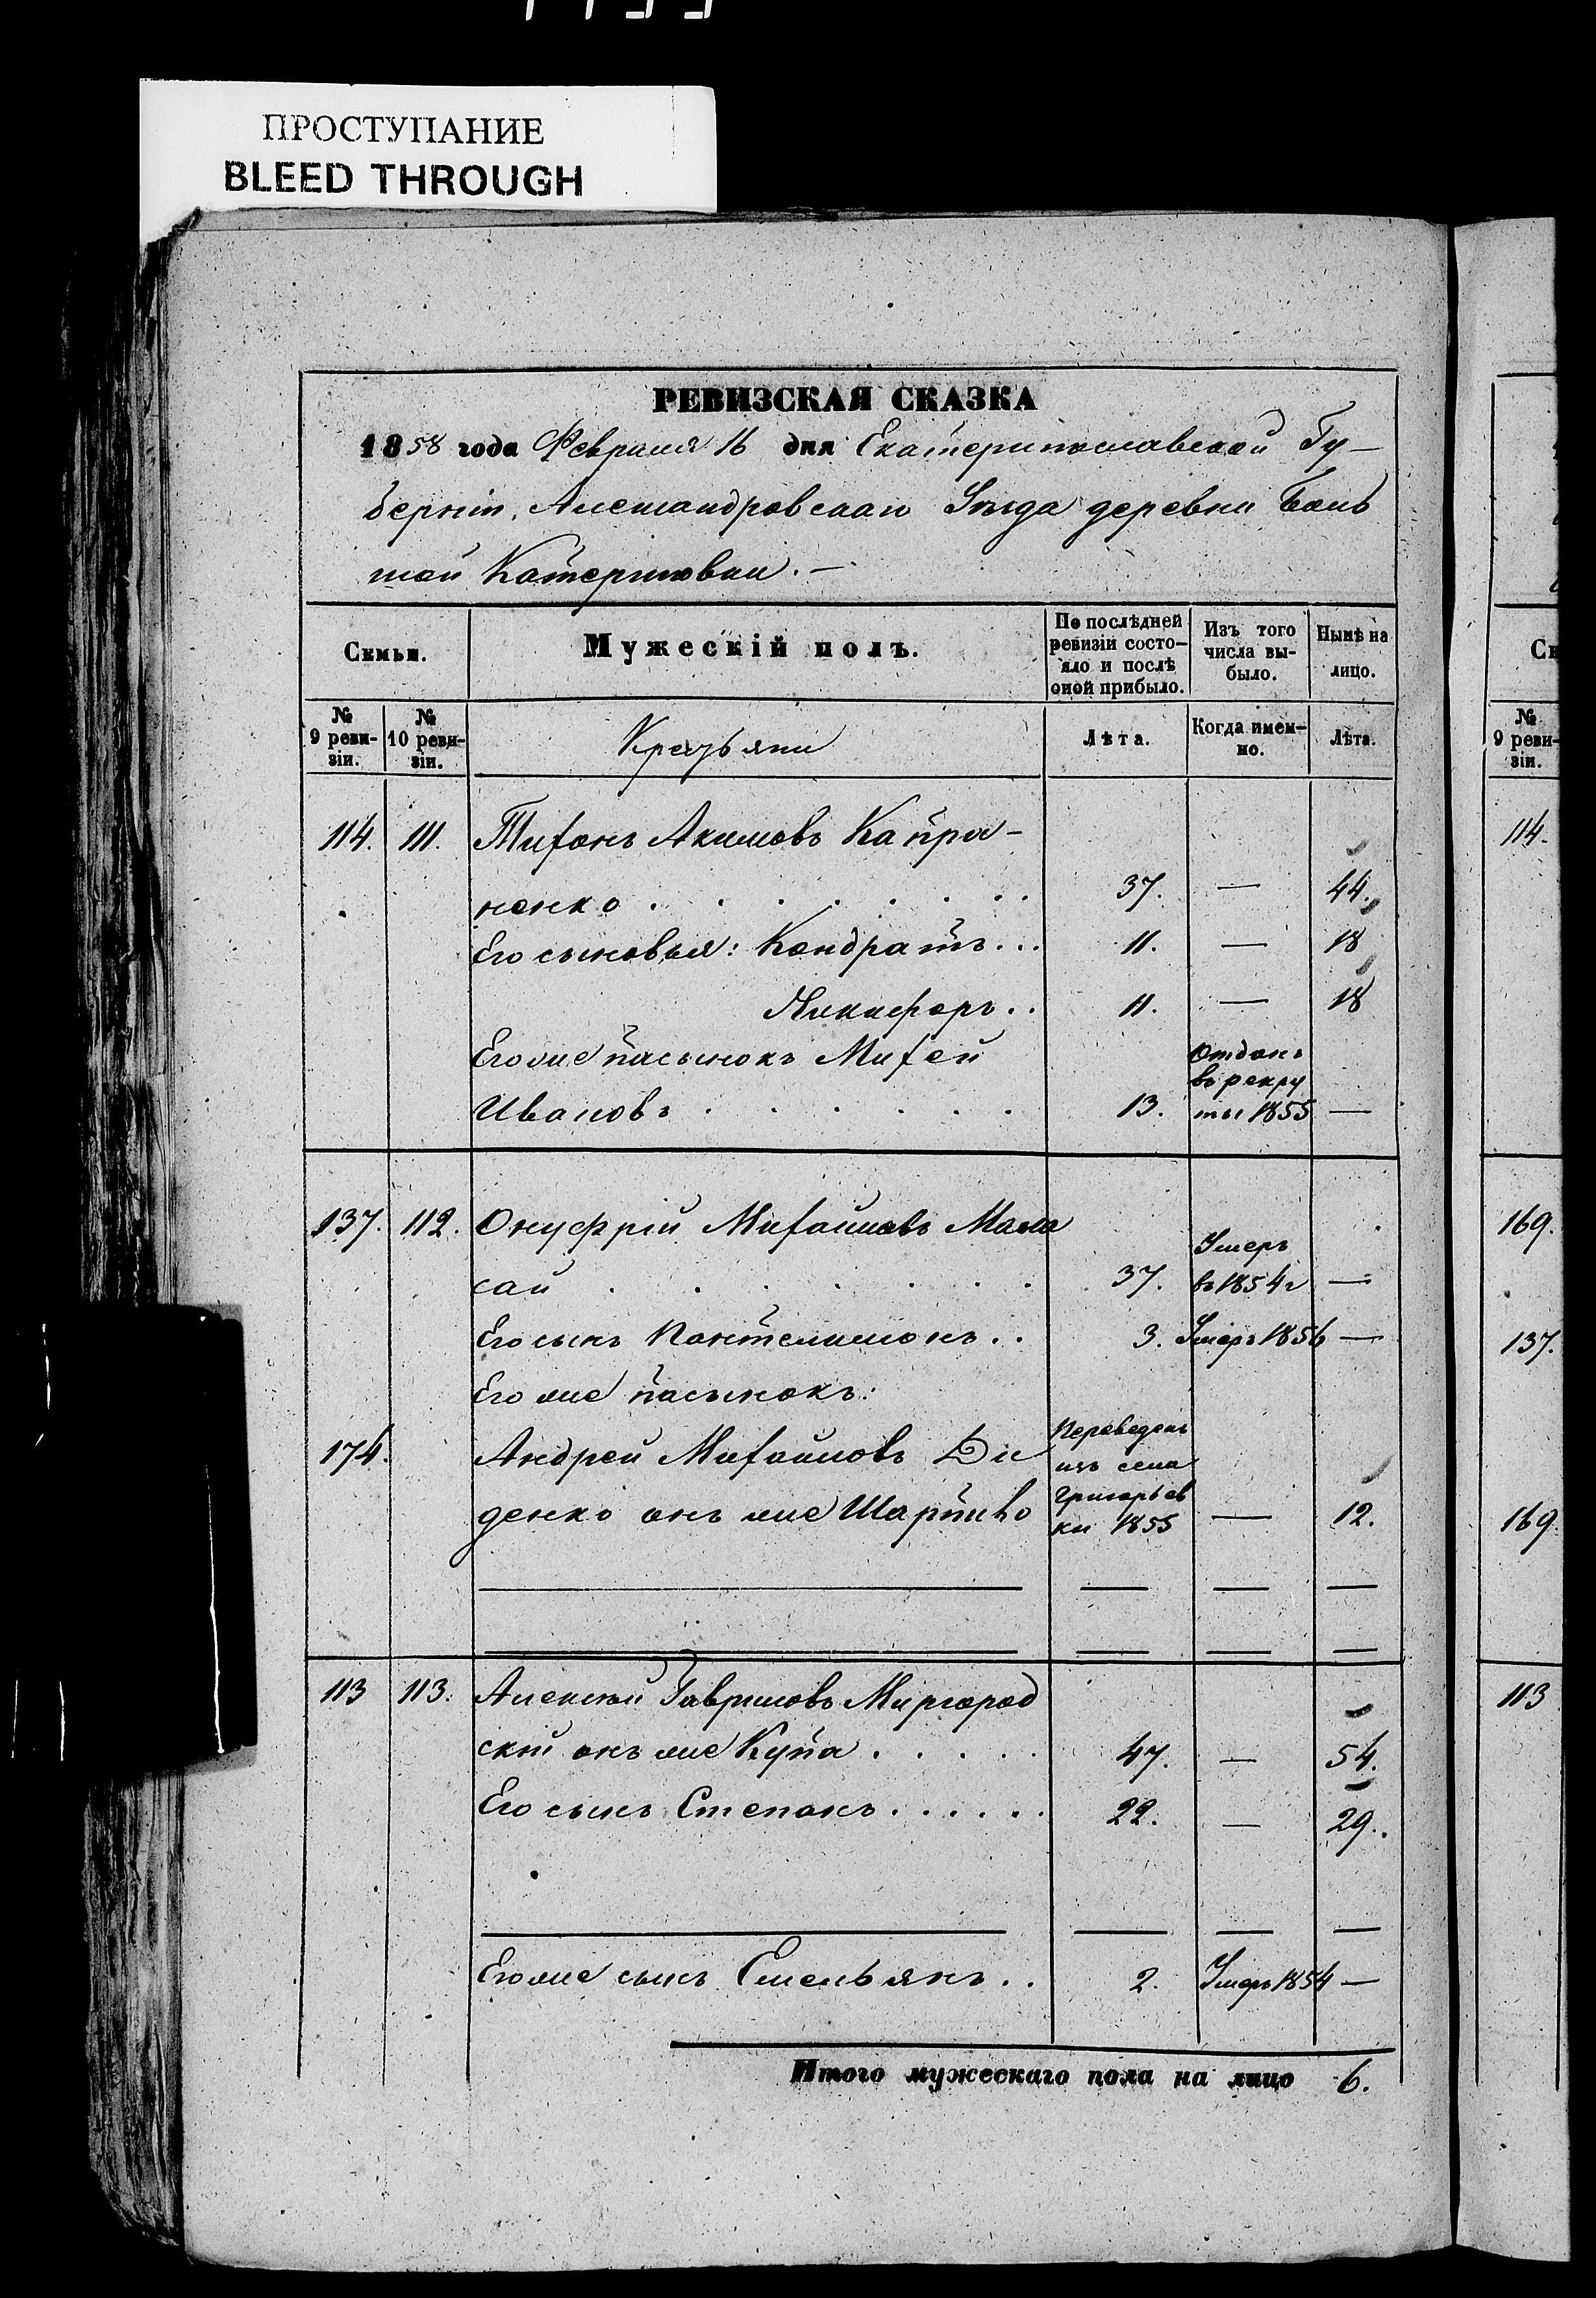 ПРОСТУПАНИЕ
BLEED THROUGH
РЕВИЗСКАЯ СКАЗКА
1858 года Февраля 16 дня Екатеринославской Гу-
берніи, Александровскаго Уѣзда деревни Боль
шой Катериновки.-
Семьи. Мужескій полъ. По послѣдней ревизіи состо-яло и послѣ оной прибыло. Изъ того числа вы-было. Нынѣ на лицо. С
№ 9 реви-зіи. № 10 реви-зіи. Крестьяни Лѣта. Когда имен-но. Лѣта. № 9 реви-зіи.
114. 111. Тихонъ Акимовъ Капра- 114.
ненко 37. — 44.
Его сыновья: Кондратъ... 11. — 18
Никифоръ.. 11. — 18
Его же пасынокъ Михей Отданъ
въ рекру
Ивановъ 13. ты 1855 —
137. 112. Онуфрій Михайловъ Мама 169.
Умеръ
сай 37. въ 1854 г —
Его сынъ Пантелимонъ.. 3. Умеръ 1856 — 137.
Его же пасынокъ:
174. Андрей Михайловъ Ди Переведенъ
изъ села
Григорьев
денко онъ же Шарпило ки 1855 — 12. 169.
113 113. Алексѣй Гавриловъ Миргород 113
скій онъ же Купа..... 47. — 54.
Его сынъ Степанъ...... 22. — 29.
Его же сынъ Емельянъ.. 2. Умеръ 1854 —
Итого мужескаго пола на лицо 6.